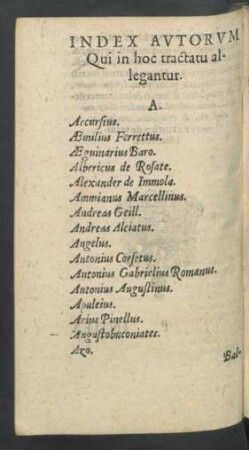 INDEX AVTORVM
Qui in hoc tractatu al-
legantur.
A.
Accursius.
Æmilius Ferrettus.
Æguinarius Baro.
Albericus de Rosate.
Alexander de Immola.
Ammianus Marcellinus.
Andreas Geill.
Andreas Alciatus.
Angelus.
Antonius Corsetus.
Antonius Gabrielius Romanus.
Antonius Augustinus.
Apuleius.
Arius Pinellus.
Azo.
Bal-